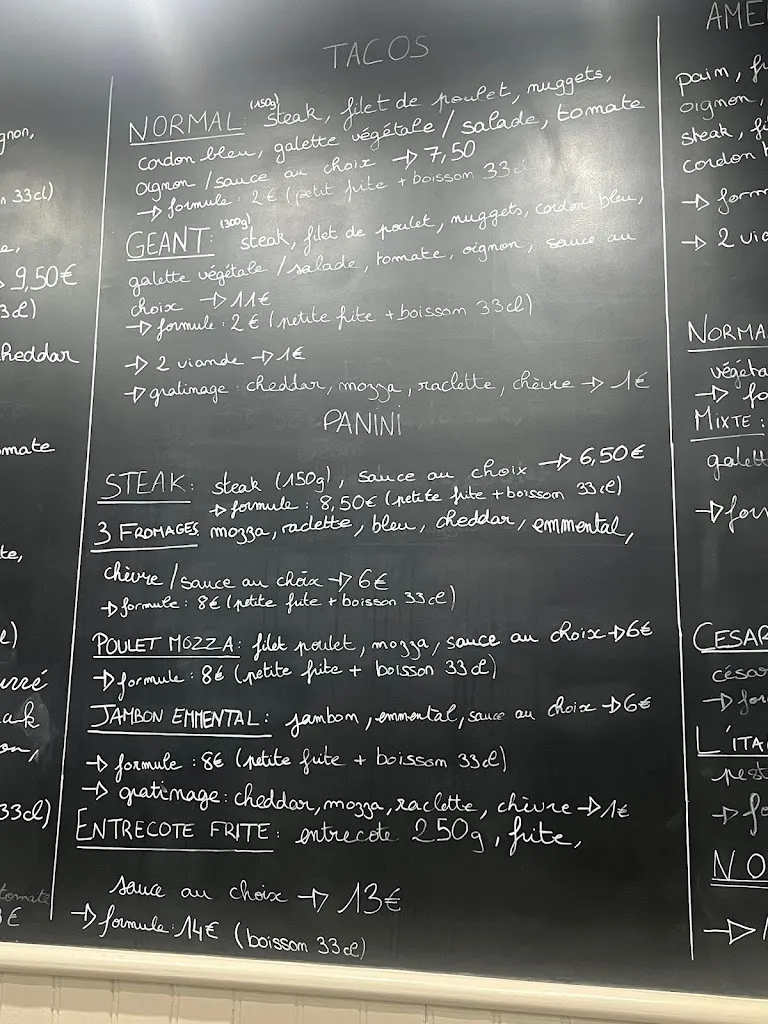 TACOS
NORMAL: (150g) steak, filet de poulet, nuggets,
cordon bleu, galette végétale / salade, tomate
oignon / sauce au choix → 7,50
→ formule : 2€ (petit frite + boisson 33cl
GEANT: (300g) steak, filet de poulet, nuggets, cordon bleu,
galette végétale / salade, tomate, oignon, sauce au
choix → 11€
→ formule : 2€ (petite frite + boisson 33cl)
→ 2 viande → 1€
→ gratinage : cheddar, mozza, raclette, chèvre → 1€
PANINI
STEAK: steak (150g), sauce au choix → 6,50€
→ formule : 8,50€ (petite frite + boisson 33cl)
3 FROMAGES mozza, raclette, bleu, cheddar, emmental,
chèvre / sauce au choix → 6€
→ formule : 8€ (petite frite + boisson 33cl)
POULET MOZZA: filet poulet, mozza, sauce au choix → 6€
→ formule : 8€ (petite frite + boisson 33cl)
JAMBON EMMENTAL: jambon, emmental, sauce au choix → 6€
→ formule : 8€ (petite frite + boisson 33cl)
→ gratinage : cheddar, mozza, raclette, chèvre → 1€
ENTRECOTE FRITE: entrecote 250g, frite,
sauce au choix → 13€
→ formule : 14€ (boisson 33cl)
gnon,
33cl)
9,50€
cheddar
omate
te,
33cl)
tomate
AME
pain, f
oignon,
steak, fi
cordon
→ form
→ 2 via
NORMA
végéta
→ fo
MIXTE :
galett
→ for
CESAR
césar
→ for
L'ITA
pest
→ fo
NO
→